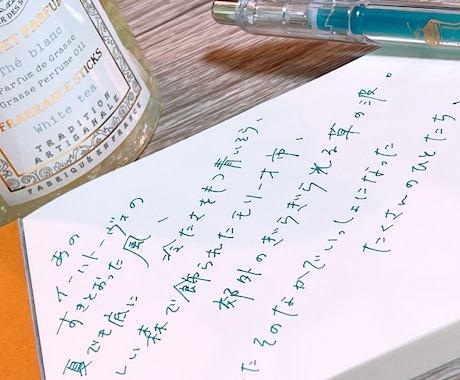 Thé blanc
Parfum de Grasse
Grasse Perfume Oil
FRAGRANCE STICKS
White tea
TRADITION
ARTISANALE
FABRIQUÉ EN FRANCE
あの
イーハトーヴォの
すきとおった風、
夏でも底に冷たさをもつ青いそら、
しい森で飾られたモリーオ市、
郊外のぎらぎら光る草の波。
たそのなかでいっしょになった
たくさんのひとたち、